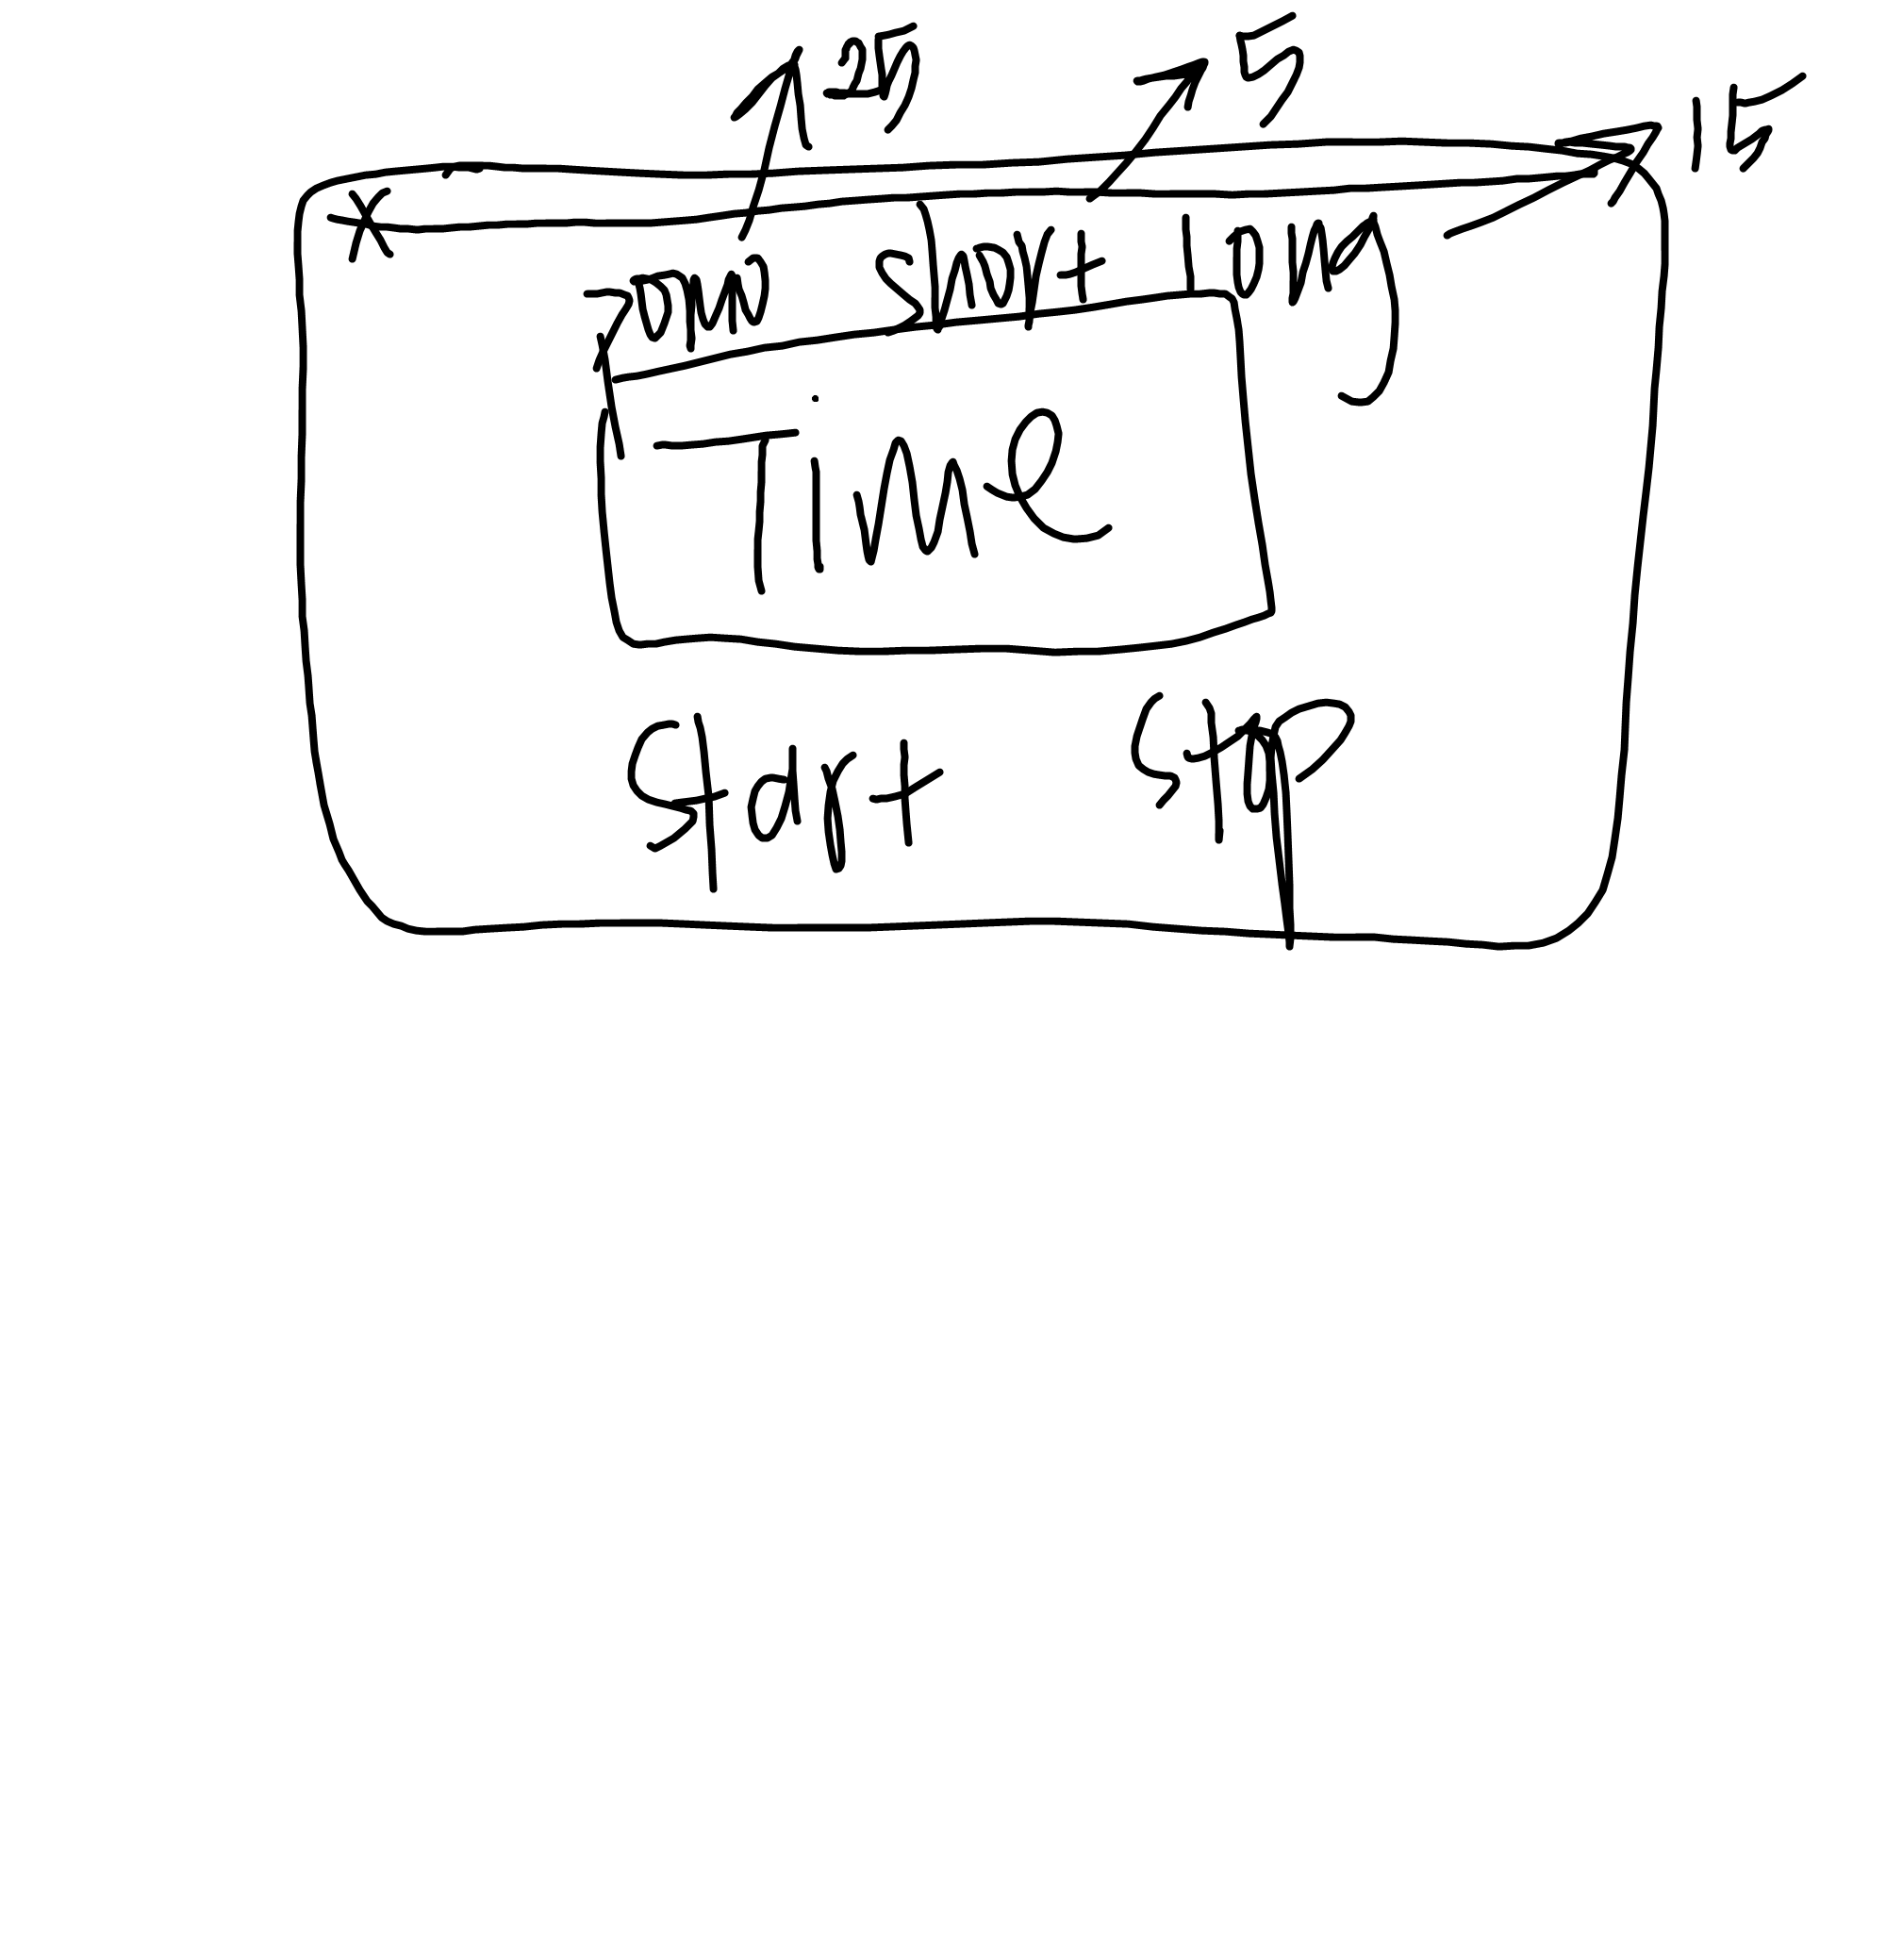 25 5 15
x
pomo short long
Time
Start Stop